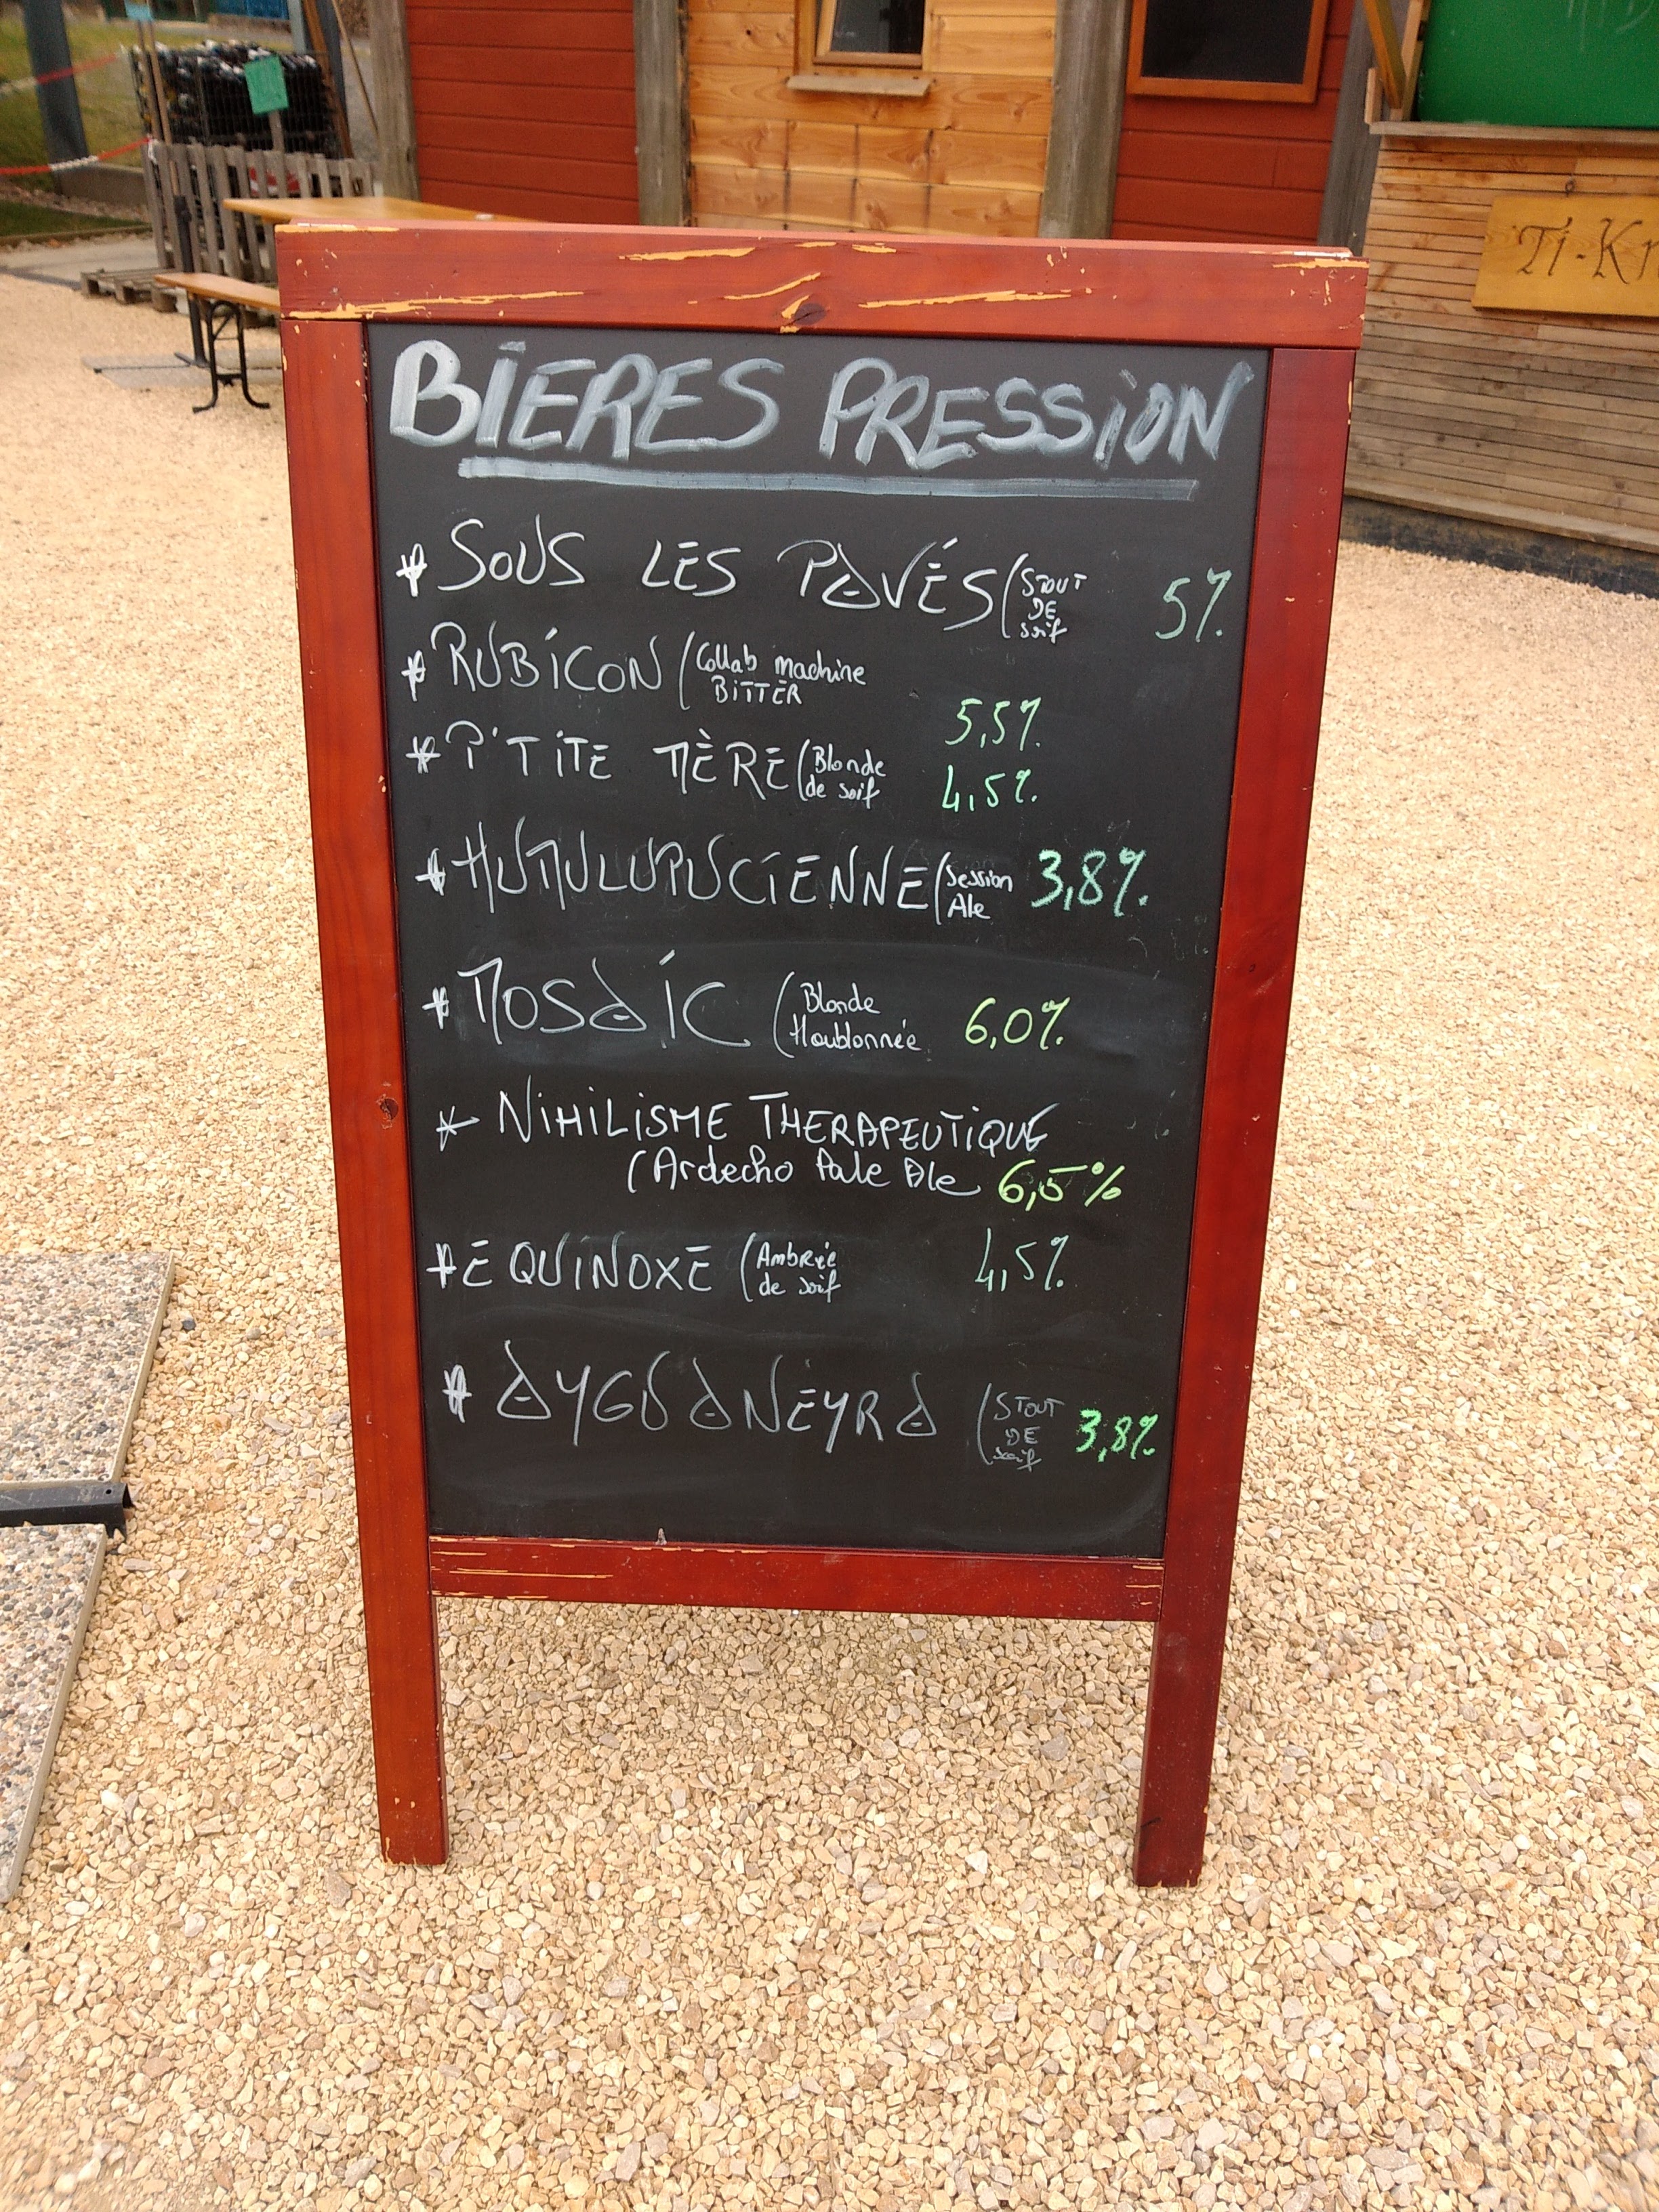 BIERES PRESSION
* SOUS LES PAVÉS (STOUT DE soif 5%
* RUBICON (Collab machine BITTER 5,5%
* P'TITE MÈRE (Blonde de soif 4,5%
* HUMULUPUCIENNE (Session Ale 3,8%
* MOSAIC (Blonde Houblonnée 6,0%
* NIHILISME THERAPEUTIQUE
(Ardecho Pale Ale 6,5%
* EQUINOXE (Ambrée de soif 4,5%
* AYGUANEYRA (STOUT DE soif 3,8%
Ti-Kr